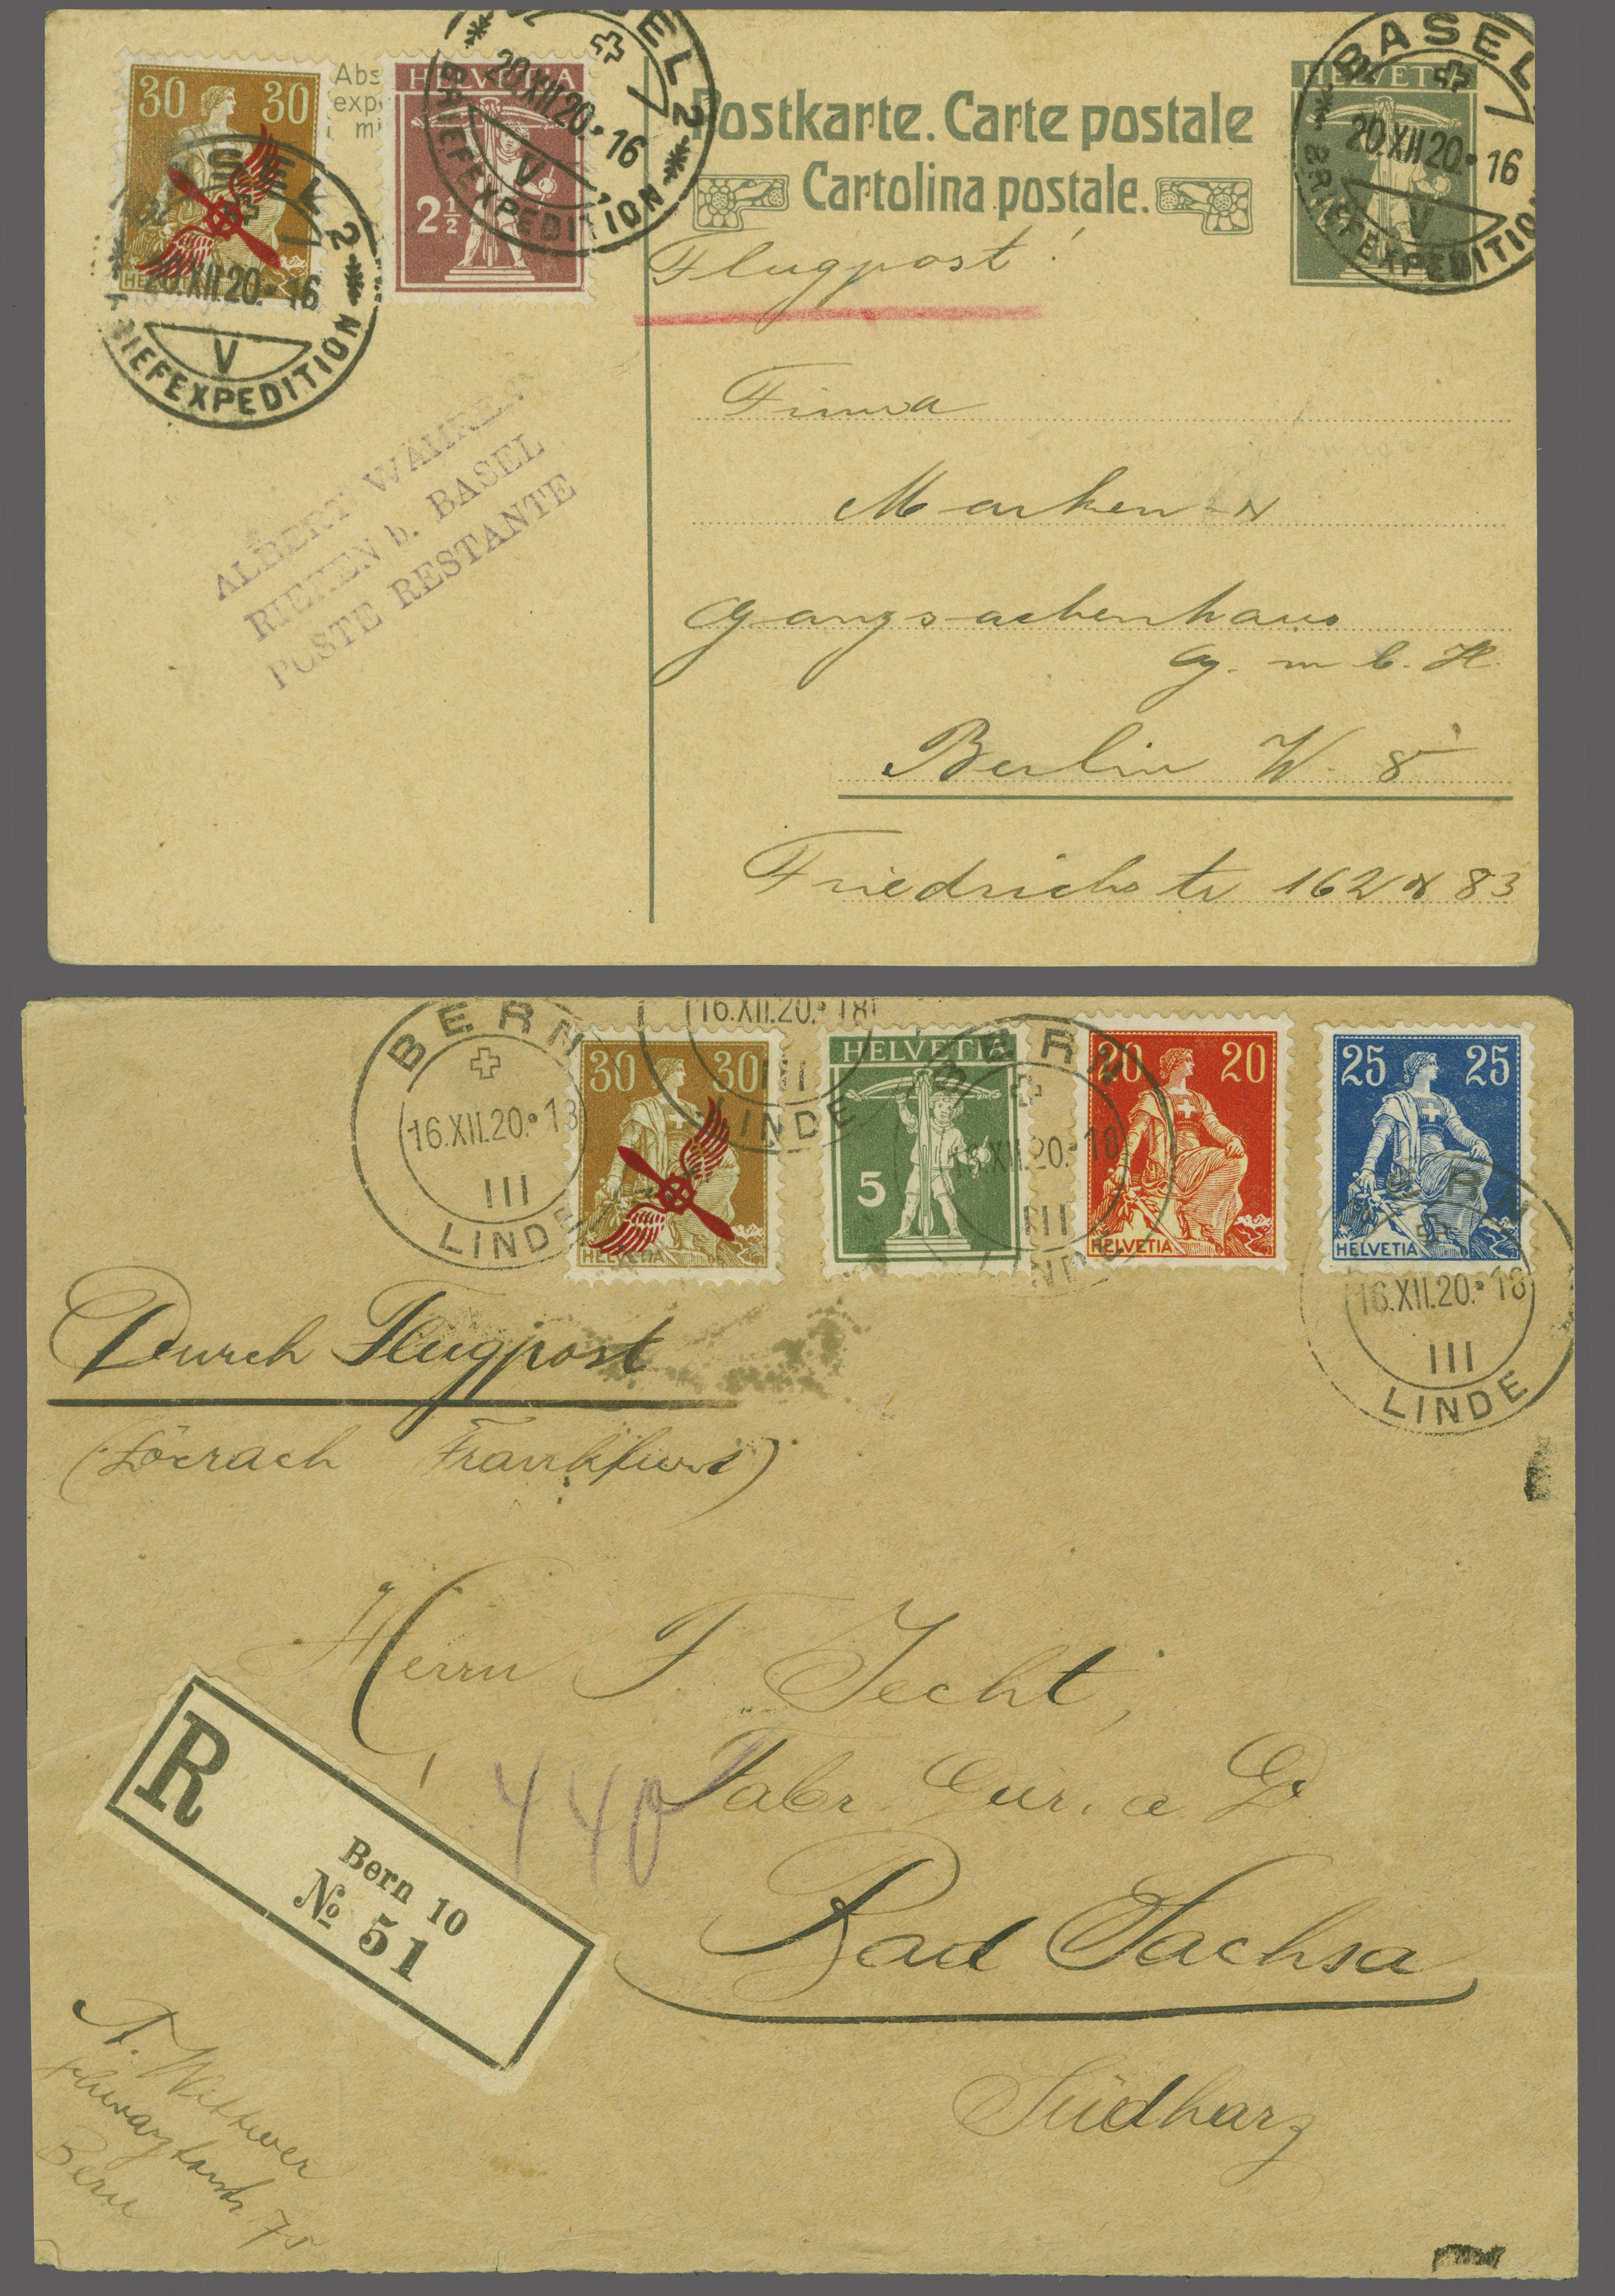 30 30
Abs
exp
m
HELVETIA
2½
BASEL 2
20.XII.20.-16
V
BRIEFEXPEDITION
SEL 2
20.XII.20.-16
V
BRIEFEXPEDITION
Postkarte. Carte postale
Cartolina postale.
HELVETIA
BASEL
20.XII.20.-16
V
BRIEFEXPEDITION
Flugpost!
ALBERT WÄHREN
RIEHEN b. BASEL
POSTE RESTANTE
Firma
Marken- &
Ganzsachenhaus
G. m b. H.
Berlin W. 8
Friedrichstr 162 & 83
BERN
16.XII.20.-18
III
LINDE
16.XII.20.-18
III
LINDE
BERN
XII.20.-18
III
LINDE
BERN
16.XII.20.-18
III
LINDE
30 30
HELVETIA
HELVETIA
5
20 20
HELVETIA
25 25
HELVETIA
Durch Flugpost
(Lörrach Frankfurt)
Herrn F. Jecht,
Fabr. Dir. a. D.
Bad Sachsa
Südharz
440
R
Bern 10
No 51
A. Wittwer
Bern